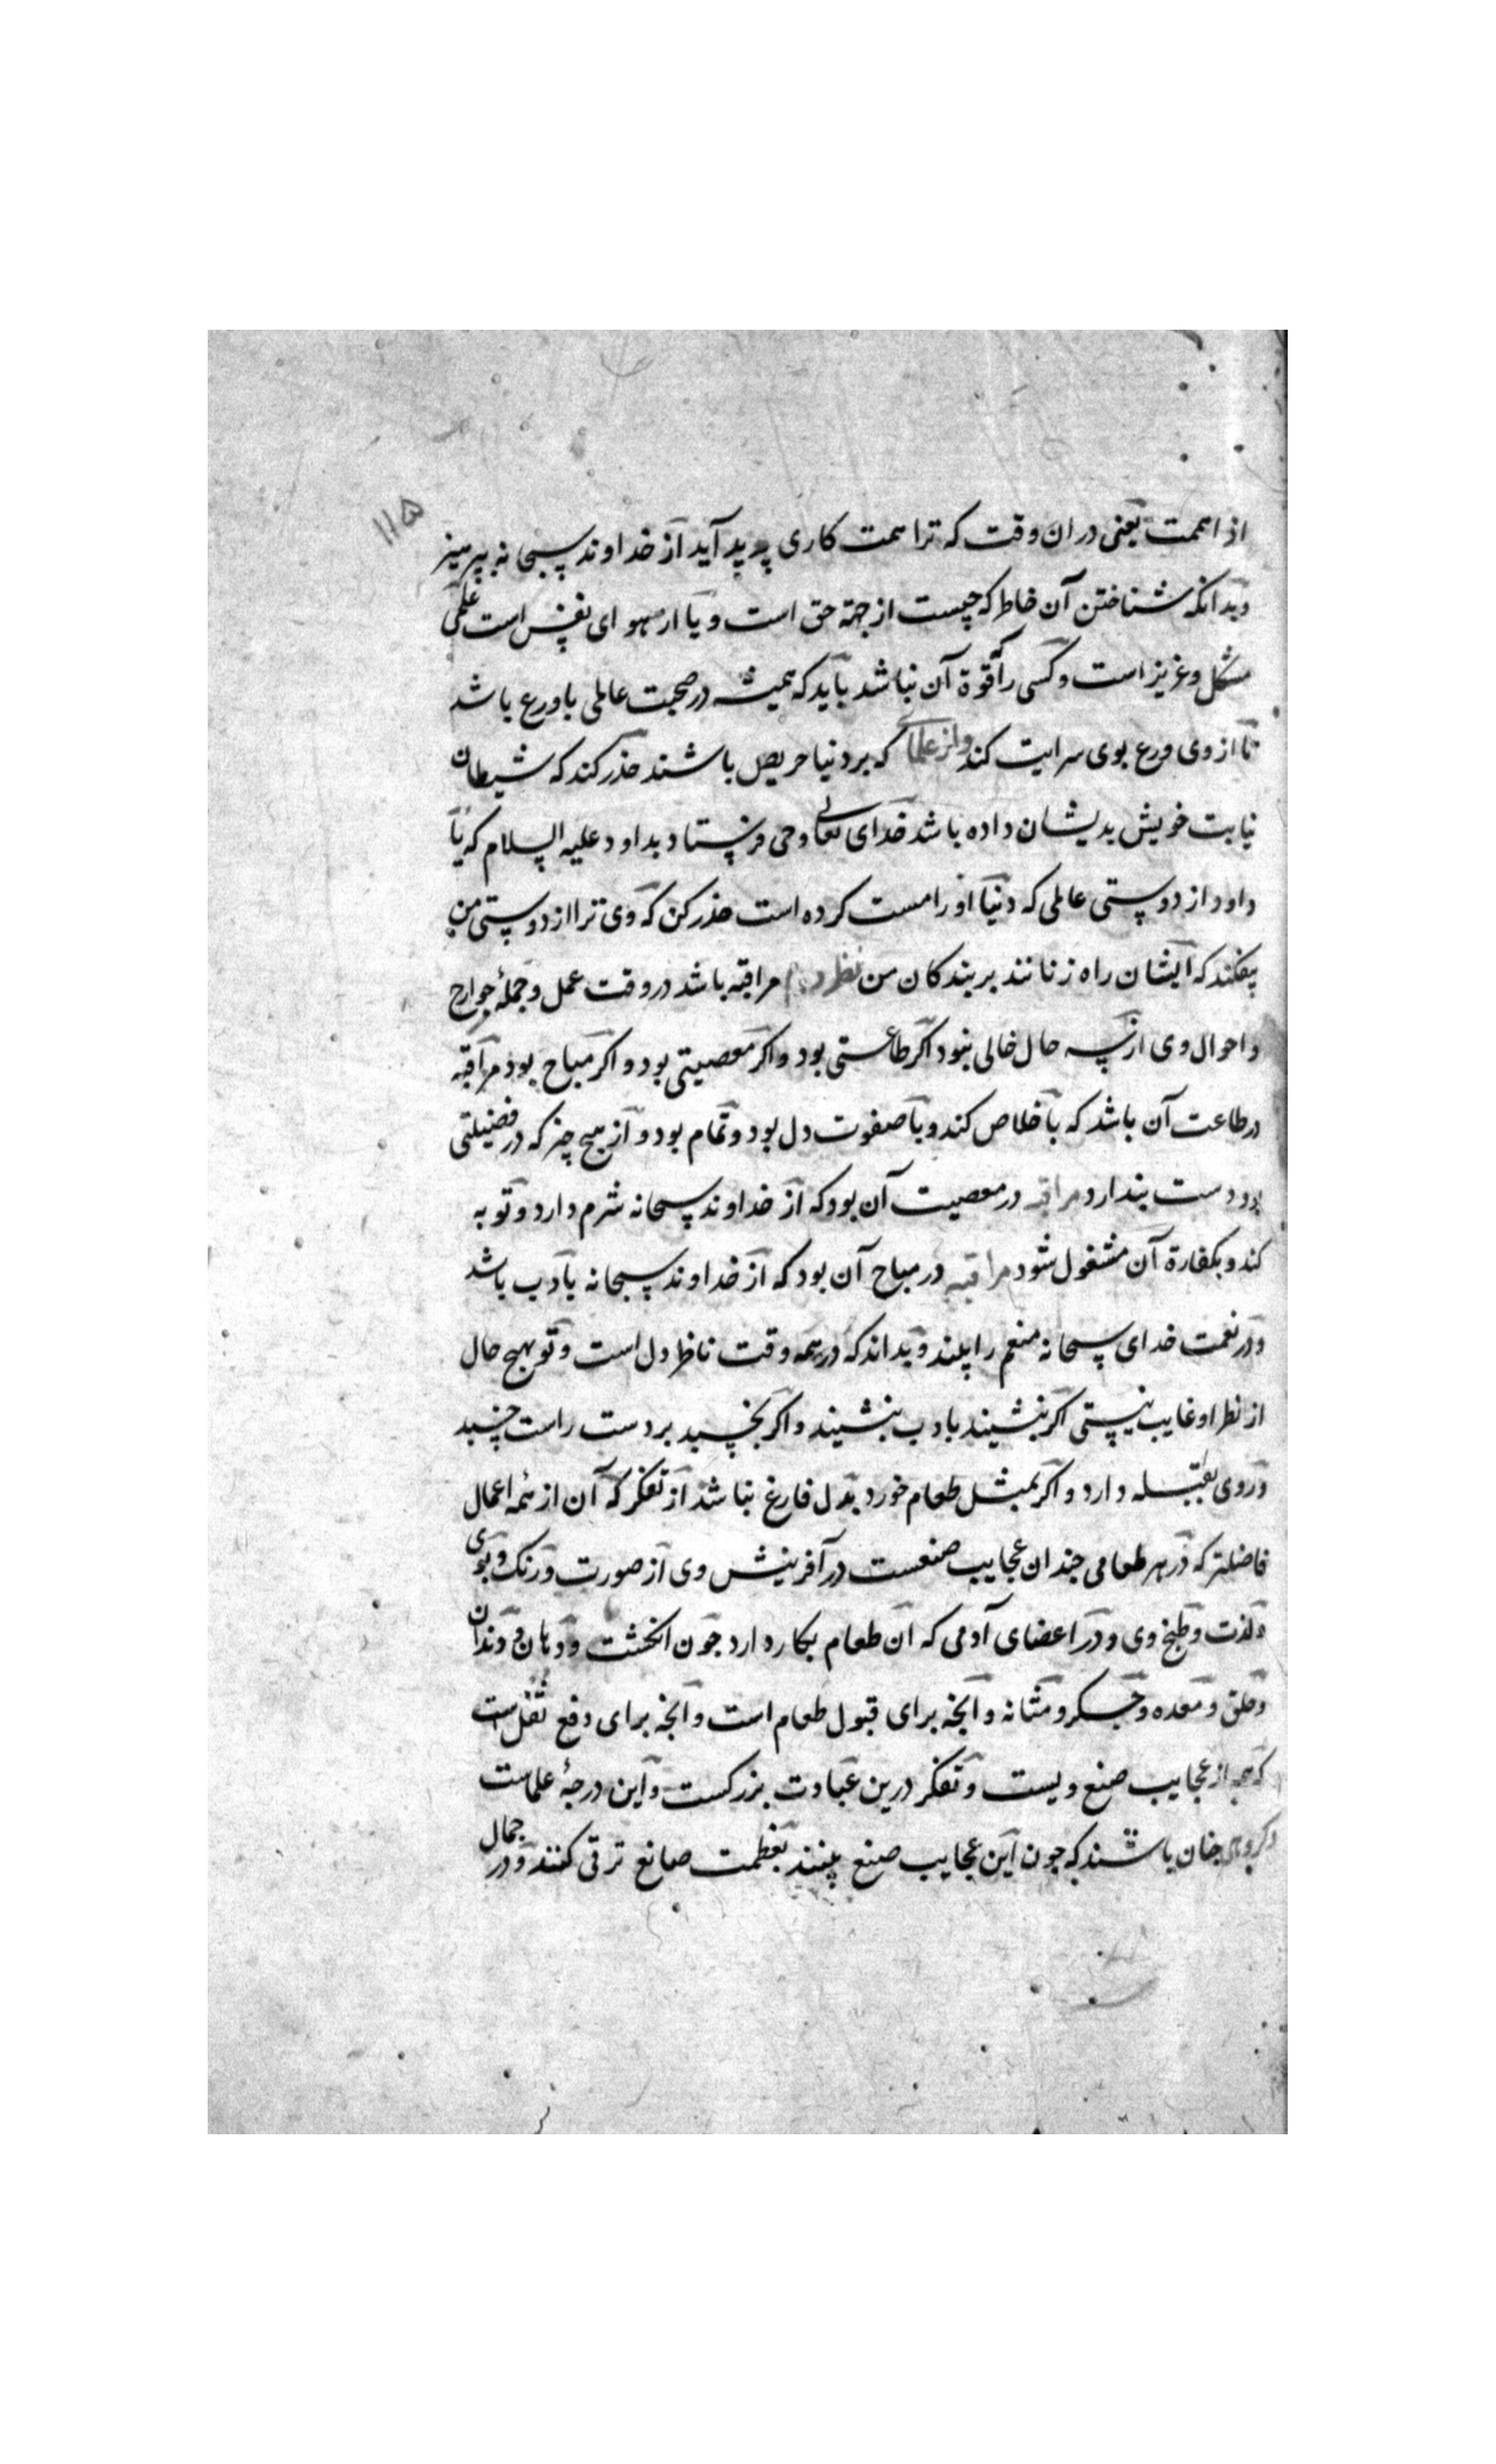 ۱۱۵
اذا همت یعنی در ان وقت که ترا همت کاری پدید آید از خداوند سبحانه بپرهیز
وبدانکه شناختن آن خاطر که چیست از جهة حق است ویا از هوای نفس است علمی
مشکل وعزیز است وکسی را که قوة آن نباشد باید که همیشه در صحبت عالمی با ورع باشد
تا از وی ورع بوی سرایت کند واز علمای که بر دنیا حریص باشند حذر کند که شیطان
نیابت خویش بدیشان داده باشد خدای تعالی وحی فرستاد بداود علیه السلام که یا
داود از دوستی عالمی که دنیا او را مست کرده است حذر کن که وی ترا از دوستی من
بیفکند که ایشان راه زنانند بر بندکان من نظر دوم مراقبه باشد در وقت عمل وجملهٔ جوارح
واحوال وی از سه حال خالی نبود اکر طاعتی بود واکر معصیتی بود واکر مباح بود مراقبه
در طاعت آن باشد که باخلاص کند وبا صفوت دل بود وتمام بود واز هیچ چیز که در فضیلتی
بود دست بندارد مراقبه در معصیت آن بود که از خداوند سبحانه شرم دارد وتوبه
کند وبکفارة آن مشغول شود مراقبه در مباح آن بود که از خداوند سبحانه بادب باشد
ودر نعمت خدای سبحانه منعم را بیند وبداند که در همه وقت ناظر دل است وتو بهیچ حال
از نظر او غایب نیستی اکر بنشیند بادب بنشیند واکر بخسبد بر دست راست خسبد
وروی بقبله دارد واکر بمثل طعام خورد بدل فارغ نباشد از تفکر که آن از همه اعمال
فاضلتر که در هر طعامی جندان عجایب صنعست در آفرینش وی از صورت ورنک وبوی
ولذت وطبخ وی ودر اعضای آدمی که ان طعام بکار دارد جون انکشت ودهان ودندان
وحلق ومعده وجکر ومثانه وآنجه برای قبول طعام است وآنجه برای دفع ثفل است
که همه از عجایب صنع ویست وتفکر درین عبادت بزرکست واین درجهٔ علماست
وکروهی جنان باشند که جون این عجایب صنع بینند بعظمت صانع ترقی کنند ودر جمال